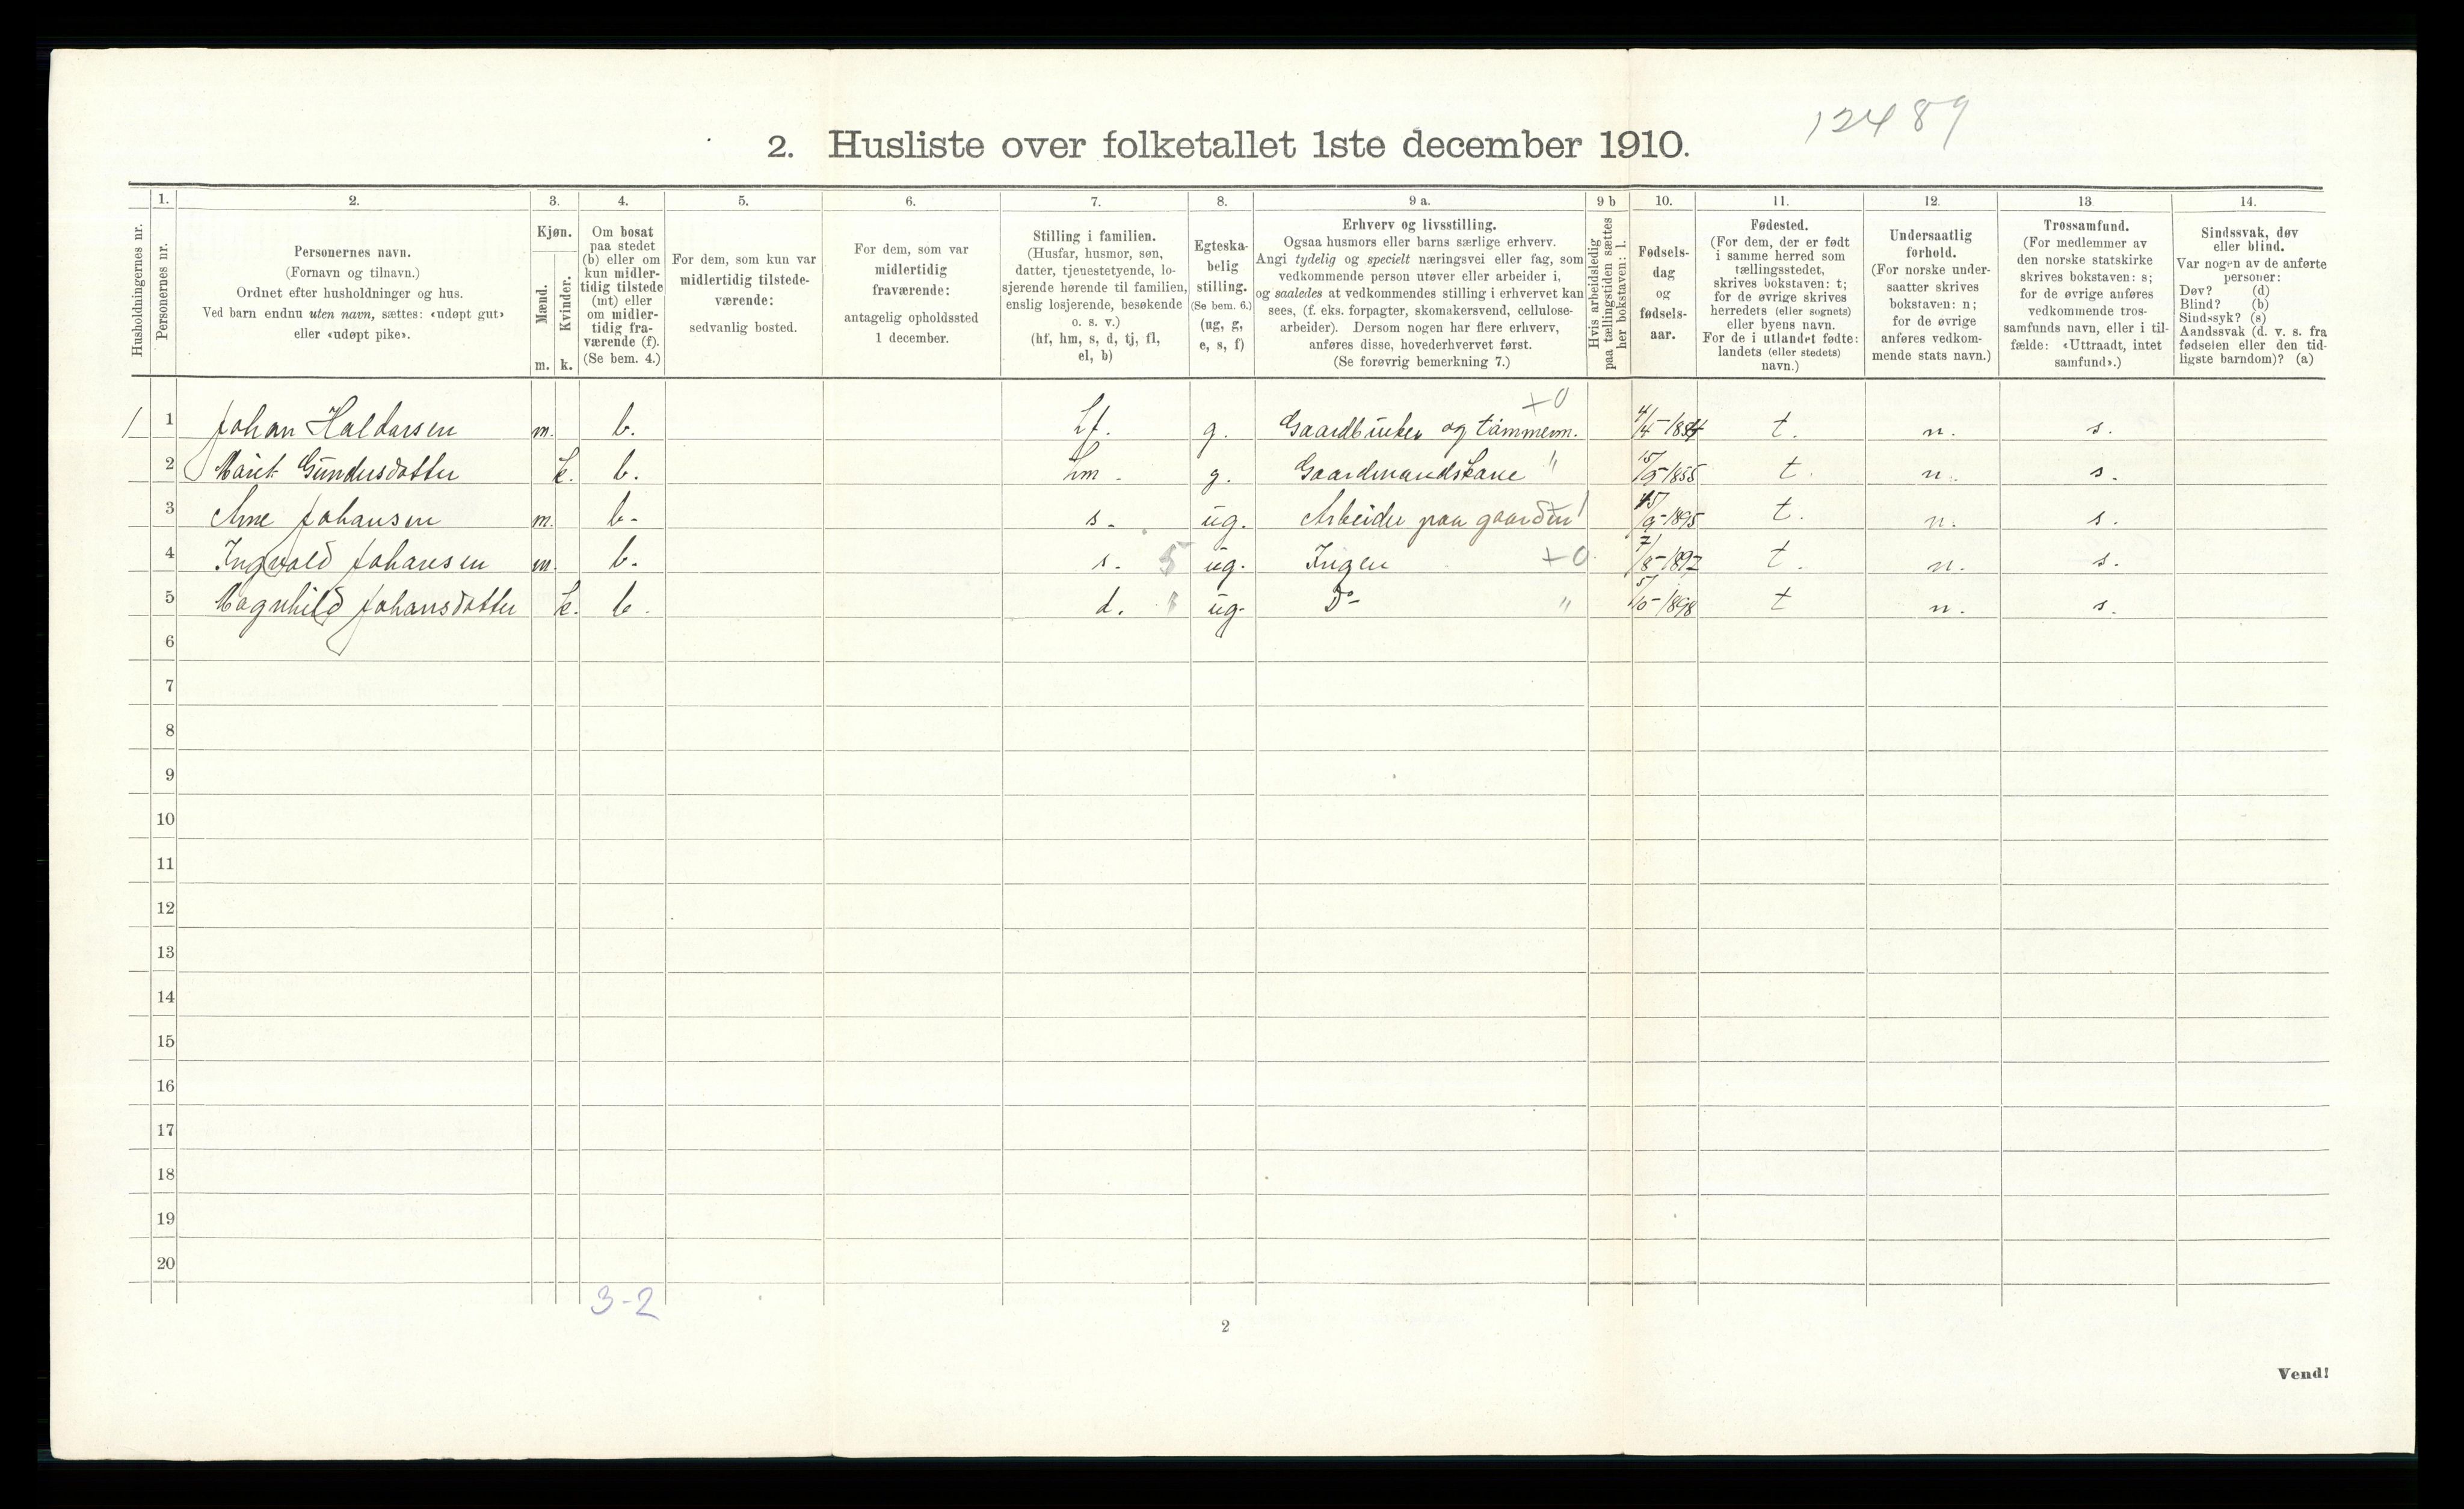 12489
2. Husliste over folketallet 1ste december 1910.
Husholdningernes nr.
1.
Personernes nr.
2.
Personernes navn.
(Fornavn og tilnavn.)
Ordnet efter husholdninger og hus.
Ved barn endnu uten navn, sættes: «udøpt gut»
eller «udøpt pike».
3.
Kjøn.
Mænd.
Kvinder.
m. k.
4.
Om bosat
paa stedet
(b) eller om
kun midler-
tidig tilstede
(mt) eller
om midler-
tidig fra-
værende (f).
(Se bem. 4.)
5.
For dem, som kun var
midlertidig tilstede-
værende:
sedvanlig bosted.
6.
For dem, som var
midlertidig
fraværende:
antagelig opholdssted
1 december.
7.
Stilling i familien.
(Husfar, husmor, søn,
datter, tjenestetyende, lo-
sjerende hørende til familien,
enslig losjerende, besøkende
o. s. v.)
(hf, hm, s, d, tj, fl,
el, b)
8.
Egteska-
belig
stilling.
(Se bem. 6.)
(ug, g,
e, s, f)
9 a.
Erhverv og livsstilling.
Ogsaa husmors eller barns særlige erhverv.
Angi tydelig og specielt næringsvei eller fag, som
vedkommende person utøver eller arbeider i,
og saaledes at vedkommendes stilling i erhvervet kan
sees, (f. eks. forpagter, skomakersvend, cellulose-
arbeider). Dersom nogen har flere erhverv,
anføres disse, hovederhvervet først.
(Se forøvrig bemerkning 7.)
9 b
Hvis arbeidsledig
paa tællingstiden sættes
her bokstaven: l.
10.
Fødsels-
dag
og
fødsels-
aar.
11.
Fødested.
(For dem, der er født
i samme herred som
tællingsstedet,
skrives bokstaven: t;
for de øvrige skrives
herredets (eller sognets)
eller byens navn.
For de i utlandet fødte:
landets (eller stedets)
navn.)
12.
Undersaatlig
forhold.
(For norske under-
saatter skrives
bokstaven: n;
for de øvrige
anføres vedkom-
mende stats navn.)
13
Trossamfund.
(For medlemmer av
den norske statskirke
skrives bokstaven: s;
for de øvrige anføres
vedkommende tros-
samfunds navn, eller i til-
fælde: «Uttraadt, intet
samfund».)
14.
Sindssvak, døv
eller blind.
Var nogen av de anførte
personer:
Døv? (d)
Blind? (b)
Sindssyk? (s)
Aandssvak (d. v. s. fra
fødselen eller den tid-
ligste barndom)? (a)
1 1 Johan Haldorsen m. b. hf. g. Gaardbruker og tømmerm. +0 4/4-1854 t. n. s.
2 Marit Gundersdatter k. b. hm. g. Gaardmandskone " 15/9-1855 t. n. s.
3 Arne Johansen m. b. s. ug. Arbeider paa gaarden /9-1895 t. n. s.
4 Ingvald Johansen m. b. s. 5 ug. Ingen +0 7/8-1897 t. n. s.
5 Magnhild Johansdatter k. b. d. ug. Do " 5/10-1898 t n. s.
6
7
8
9
10
11
12
13
14
15
16
17
18
19
20
3-2
2
Vend!